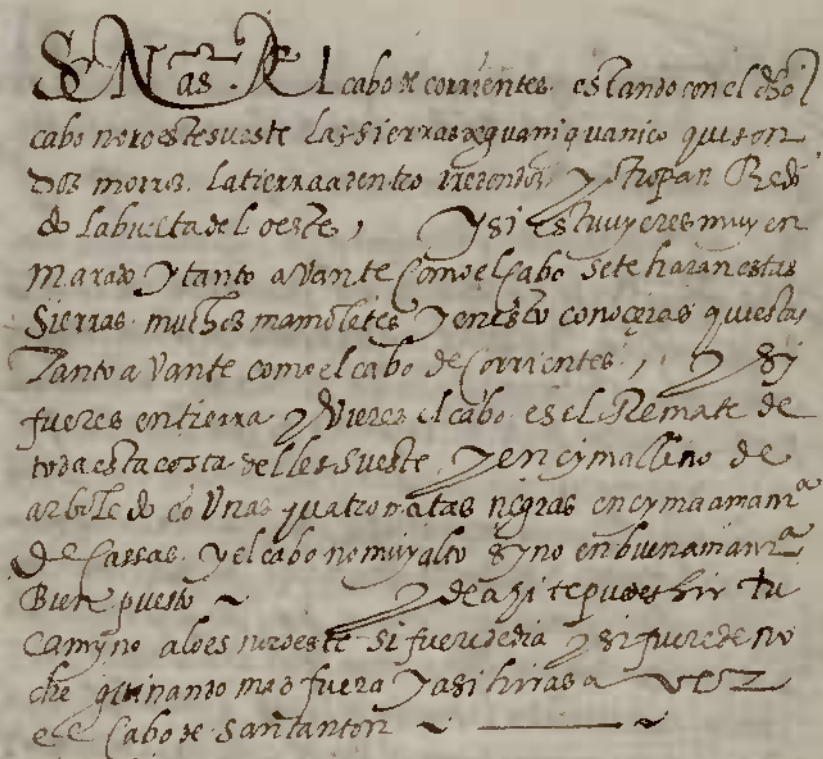 Señas. Del cabo de corrientes. estando con el dho
cabo noroestesueste las sierras de guaniguanico que son
dos morros. la tierra adentro redondos y
do la buelta del oeste, y si estuuyeres muy en
marado y tanto avante como el cabo se te haran estas
sierras. muchos mamoletes y en esto conoçeras questas
tanto avante como el cabo de corrientes, y si
fueres en tierra y vieres el cabo. es el Remate de
toda esta costa del lessueste, y en cyma llano de
arboledo co unas quatro matas negras en cyma a manra
de cassas. y el cabo no muy alto syno en buena manra
Bien puesto ~ y de aqi te puedes hir tu
camyno al oes noroeste si fuere de dia y si fuere de no
che guinando mas fuera y asi hiras a
el Cabo de santanton ~ ~